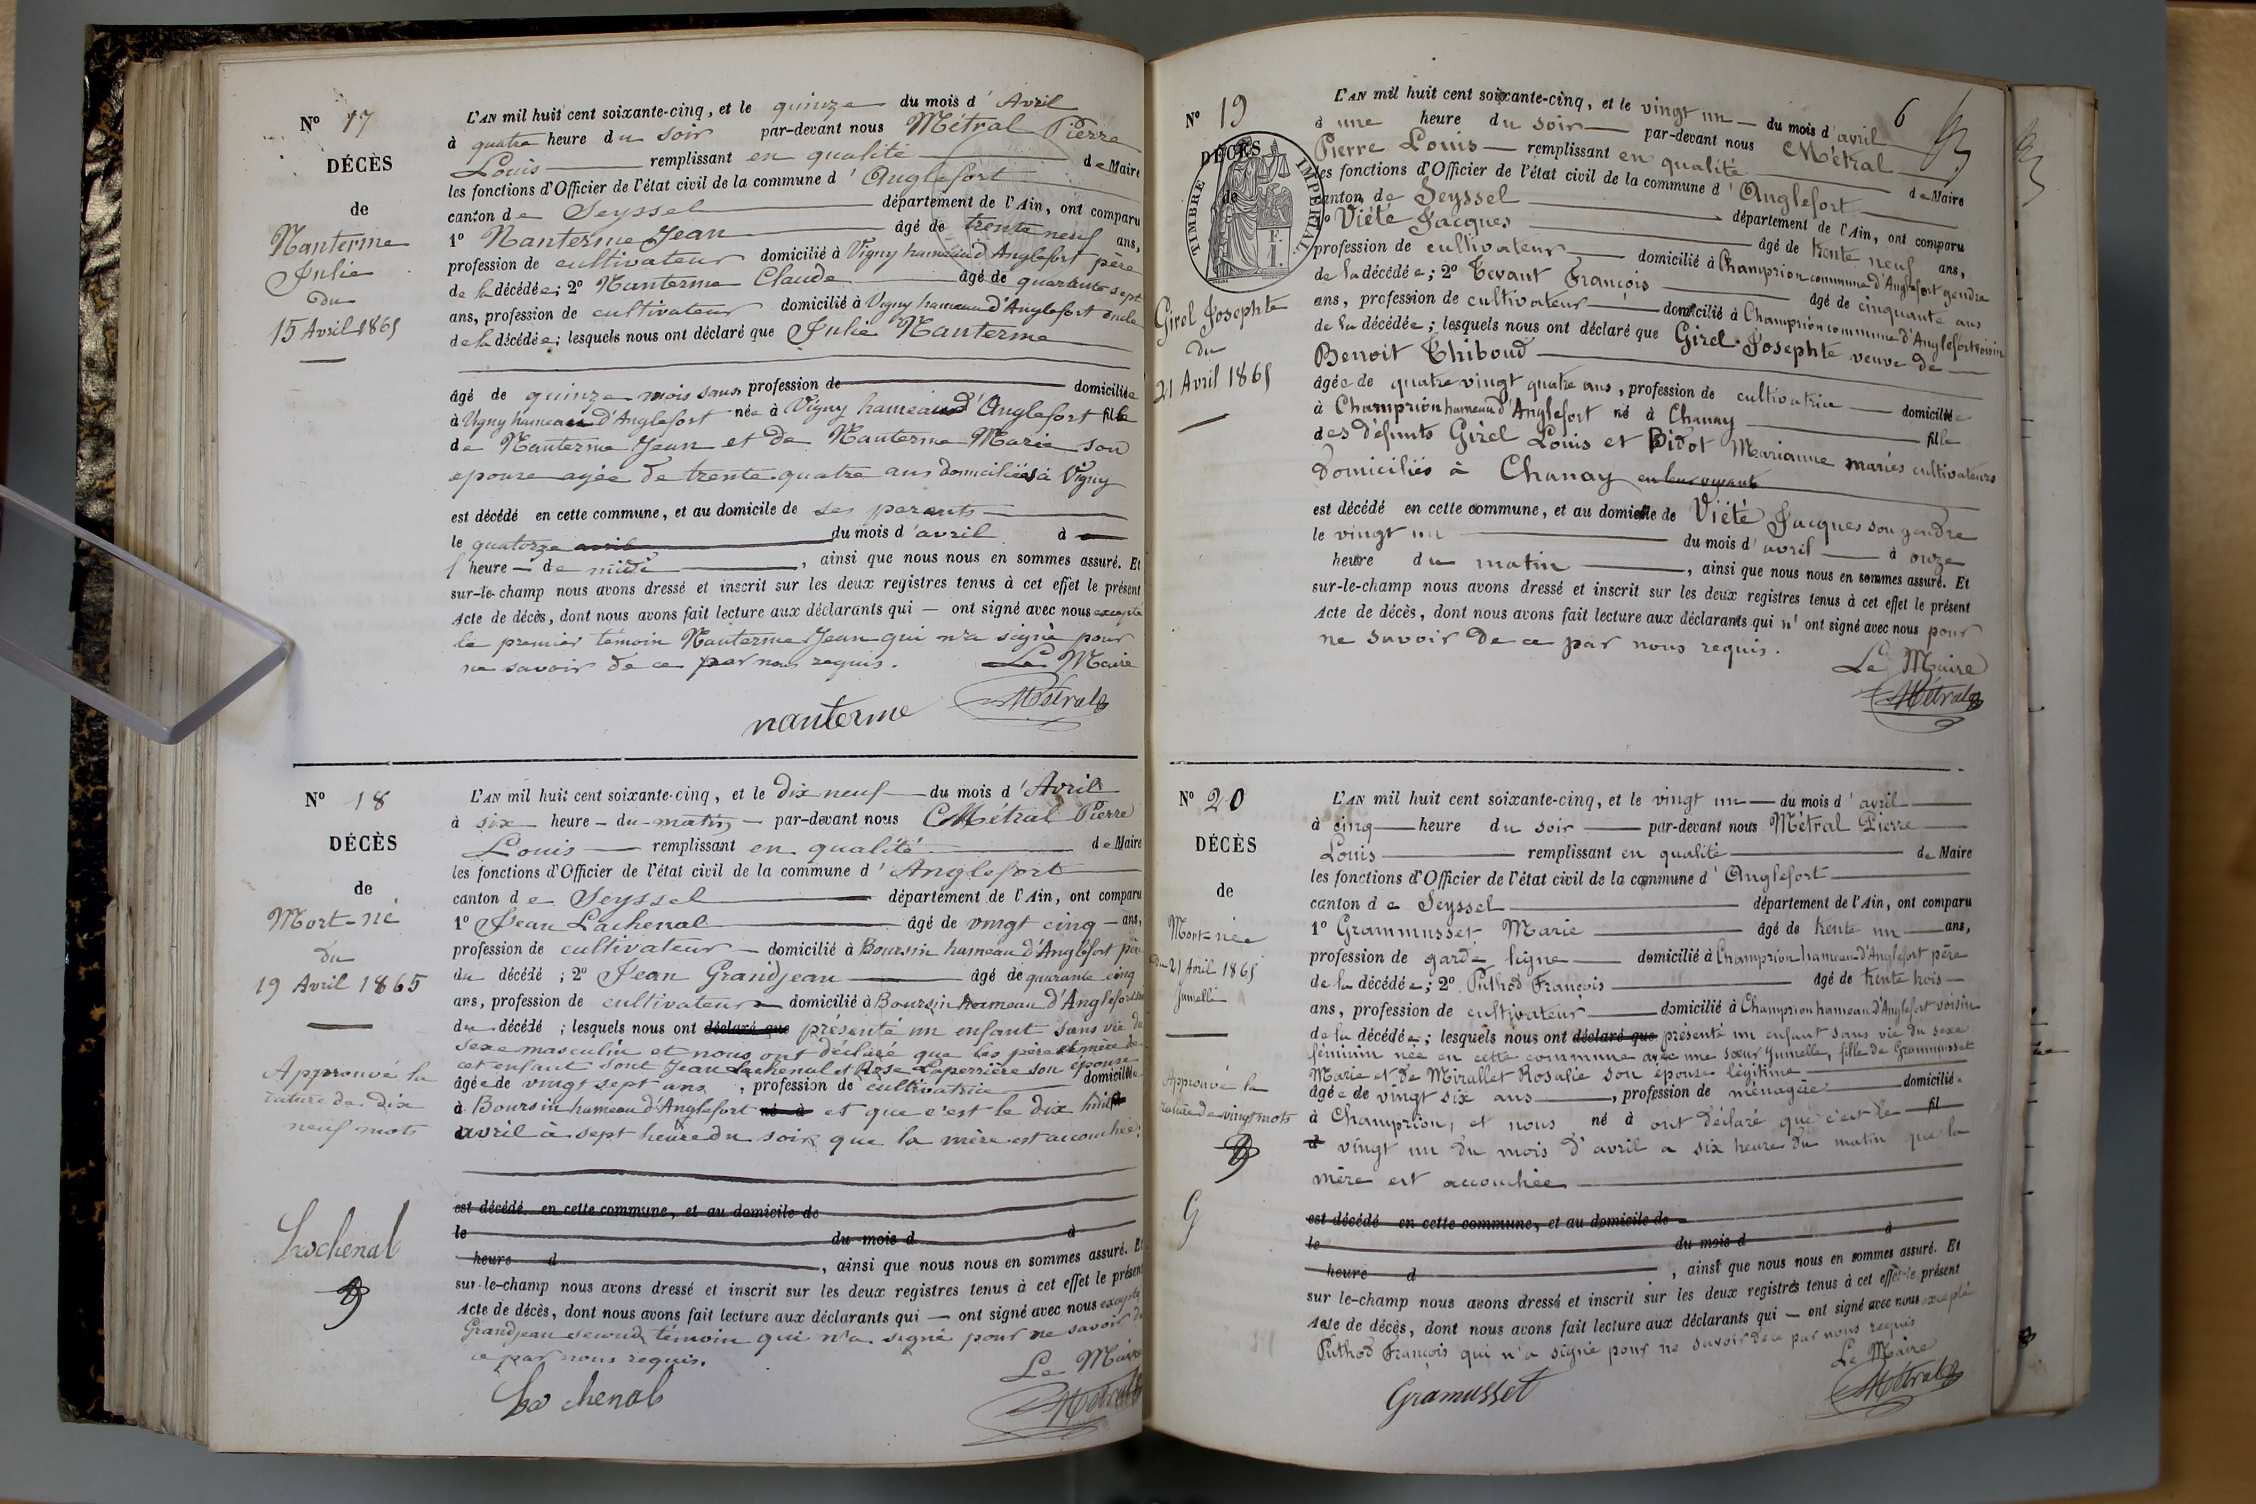 N° 17
DÉCÈS
de
Nanterme
Julie
du
15 Avril 1865
L'AN mil huit cent soixante-cinq, et le quinze du mois d'Avril
à quatre heure du soir par-devant nous Métral Pierre
Louis remplissant en qualité de Maire
les fonctions d'Officier de l'état civil de la commune d'Anglefort
canton de Seyssel département de l'Ain, ont comparu
1° Nanterme Jean âgé de trente neuf ans,
profession de cultivateur domicilié à Vigny hameau d'Anglefort père
de la décédée; 2° Nanterme Claude âgé de quarante sept
ans, profession de cultivateur domicilié à Vigny hameau d'Anglefort oncle
de la décédée; lesquels nous ont déclaré que Julie Nanterme
âgé de quinze mois sans profession de domiciliée
à Vigny hameau d'Anglefort née à Vigny hameau d'Anglefort fille
de Nanterme Jean et de Nanterme Marie son
epouse agée de trente quatre ans domiciliés à Vigny
est décédé en cette commune, et au domicile de ses parents
le quatorze avril du mois d'avril à
heure de midi, ainsi que nous nous en sommes assuré. Et
sur-le-champ nous avons dressé et inscrit sur les deux registres tenus à cet effet le présent
Acte de décès, dont nous avons fait lecture aux déclarants qui — ont signé avec nous excepté
le premier témoin Nanterme Jean qui n'a signé pour
ne savoir de ce par nous requis. Le Maire
nanterme Métral
N° 18
DÉCÈS
de
Mort-né
du
19 Avril 1865
Approuvé la
rature de dix
neuf mots
Lachenal
L'AN mil huit cent soixante-cinq, et le dix neuf du mois d'Avril
à six heure du matin par-devant nous Métral Pierre
Louis remplissant en qualité de Maire
les fonctions d'Officier de l'état civil de la commune d'Anglefort
canton de Seyssel département de l'Ain, ont comparu
1° Jean Lachenal âgé de vingt cinq ans,
profession de cultivateur domicilié à Boursin hameau d'Anglefort père
du décédé; 2° Jean Grandjean âgé de quarante cinq
ans, profession de cultivateur domicilié à Boursin hameau d'Anglefort
du décédé; lesquels nous ont déclaré que présenté un enfant sans vie du
sexe masculin et nous ont déclaré que les père et mère de
cet enfant sont Jean Lachenal et Rose Laperrière son épouse
âgée de vingt sept ans, profession de cultivatrice domiciliée
à Boursin hameau d'Anglefort né à et que c'est le dix huit
avril à sept heure du soir que la mère est accouchée.
est décédé en cette commune, et au domicile de
le du mois d à
heure d, ainsi que nous nous en sommes assuré. Et
sur-le-champ nous avons dressé et inscrit sur les deux registres tenus à cet effet le présent
Acte de décès, dont nous avons fait lecture aux déclarants qui — ont signé avec nous excepté
Grandjean second témoin qui n'a signé pour ne savoir de
ce par nous requis. Le Maire
Lachenal Métral
6
N° 19
DÉCÈS
de
TIMBRE IMPÉRIAL
Girel Josephte
du
21 Avril 1865
L'AN mil huit cent soixante-cinq, et le vingt un du mois d'avril
à une heure du soir par-devant nous Métral
Pierre Louis remplissant en qualité de Maire
les fonctions d'Officier de l'état civil de la commune d'Anglefort
canton de Seyssel département de l'Ain, ont comparu
1° Viété Jacques âgé de trente neuf ans,
profession de cultivateur domicilié à Champrion commune d'Anglefort gendre
de la décédée; 2° Tevant François âgé de cinquante ans
ans, profession de cultivateur domicilié à Champrion commune d'Anglefort voisin
de la décédée; lesquels nous ont déclaré que Girel Josephte veuve de
Benoit Thiboud
âgée de quatre vingt quatre ans, profession de cultivatrice domiciliée
à Champrion hameau d'Anglefort né à Chanay fille
des défunts Girel Louis et Bidot Marianne mariés cultivateurs
domiciliés à Chanay en leur vivant
est décédé en cette commune, et au domicile de Viété Jacques son gendre
le vingt un du mois d'avril à onze
heure du matin, ainsi que nous nous en sommes assuré. Et
sur-le-champ nous avons dressé et inscrit sur les deux registres tenus à cet effet le présent
Acte de décès, dont nous avons fait lecture aux déclarants qui n'ont signé avec nous pour
ne savoir de ce par nous requis.
Le Maire
Métral
N° 20
DÉCÈS
de
Mort-née
du 21 Avril 1865
Jumelle
Approuvé la
rature de vingt mots
G
L'AN mil huit cent soixante-cinq, et le vingt un du mois d'avril
à cinq heure du soir par-devant nous Métral Pierre
Louis remplissant en qualité de Maire
les fonctions d'Officier de l'état civil de la commune d'Anglefort
canton de Seyssel département de l'Ain, ont comparu
1° Grammusset Marie âgé de trente un ans,
profession de garde ligne domicilié à Champrion hameau d'Anglefort père
de la décédée; 2° Puthod François âgé de trente trois
ans, profession de cultivateur domicilié à Champrion hameau d'Anglefort voisin
de la décédée; lesquels nous ont déclaré que présenté un enfant sans vie du sexe
féminin née en cette commune avec une sœur jumelle, fille de Grammusset
Marie et de Mirallet Rosalie son épouse légitime
âgée de vingt six ans, profession de ménagère domiciliée
à Champrion, et nous né à ont déclaré que c'est le fil
d vingt un du mois d'avril a six heure du matin que la
mère est accouchée
est décédé en cette commune, et au domicile de
le du mois d à
heure d, ainsi que nous nous en sommes assuré. Et
sur le-champ nous avons dressé et inscrit sur les deux registres tenus à cet effet le présent
Acte de décès, dont nous avons fait lecture aux déclarants qui — ont signé avec nous excepté
Puthod François qui n'a signé pour ne savoir de ce par nous requis
Le Maire
Gramusset Métral